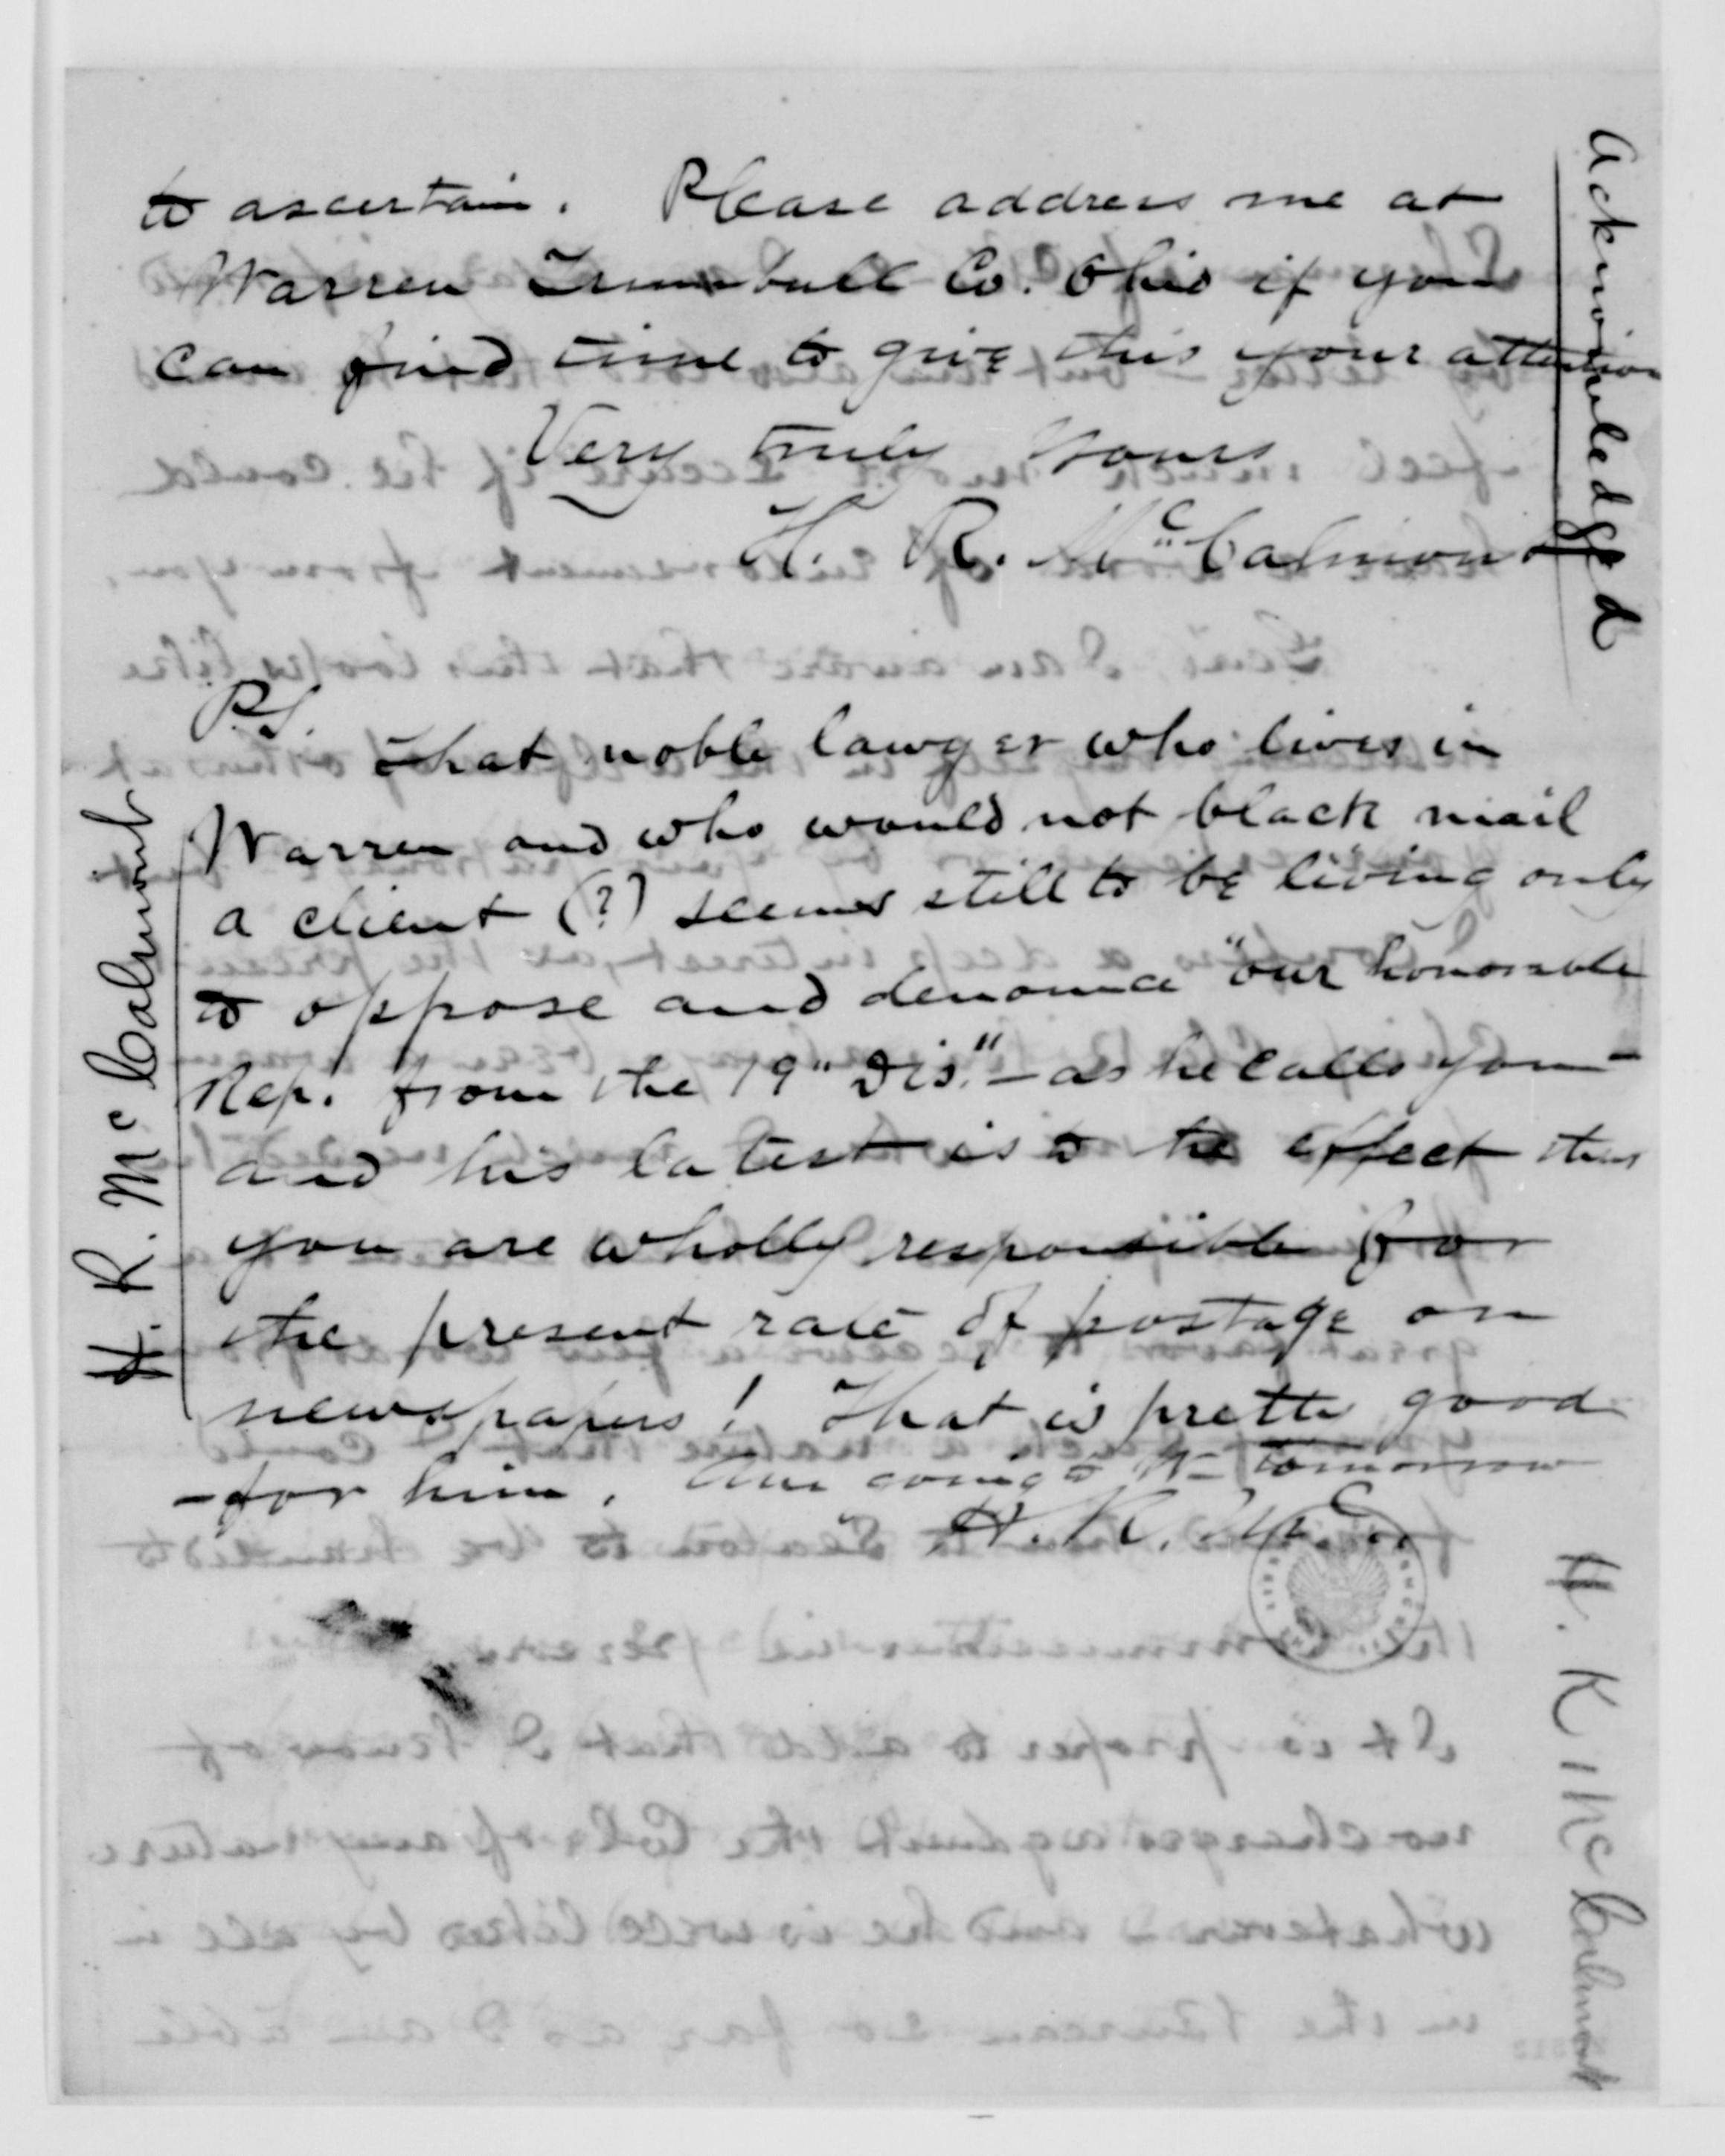 to ascertain. Please address me at
Warren Trumbull Co. Ohio if you
can find time to give this your attention
Very truly yours
H. R. McCalmont
P.S.
That noble lawyer who lives in
Warren and who would not black mail
a client (?) seems still to be living only
to oppose and denounce "our honorable
Rep. from the 19" Dis." – as he calls you –
and his latest is to the effect that
you are wholly responsible for
the present rate of postage on
newspapers! That is pretty good
– for him. Am going to W– tomorrow
H. R. McC.
Acknowledged
H. R. McCalmont
H. R. McCalmont